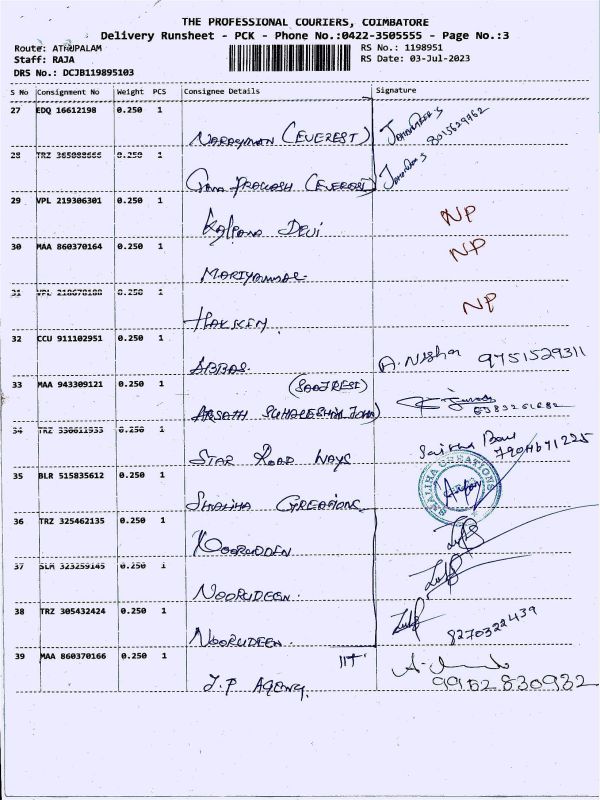 THE PROFESSIONAL COURIERS, COIMBATORE
Delivery Runsheet - PCK - Phone No.:0422-3505555 - Page No.:3
Route: ATHUPALAM RS No.: 1198951
Staff: RAJA RS Date: 03-Jul-2023
DRS No.: DCJB119895103
S No Consignment No Weight PCS Consignee Details Signature
27 EDQ 16612198 0.250 1
(EVEREST) 8015629962
28 TRZ 0.250 1
29 VPL 219306301 0.250 1
Kalpana Devi NP
30 MAA 860370164 0.250 1
NP
31 VPL 0.250 1
NP
32 CCU 911102951 0.250 1
ABBAS. A. Nisha 9751529311
33 MAA 943309121 0.250 1
34 TRZ 0.250 1
STAR ROAD WAYS
35 BLR 515835612 0.250 1
SHALIHA CREATIONS SHALIHA CREATIONS
36 TRZ 325462135 0.250 1
NOORUDEEN
37 SLM 323259145 0.250 1
NOORUDEEN.
38 TRZ 305432424 0.250 1
NOORUDEEN. 8270322439
39 MAA 860370166 0.250 1
J.P AGENCY. 9962830932